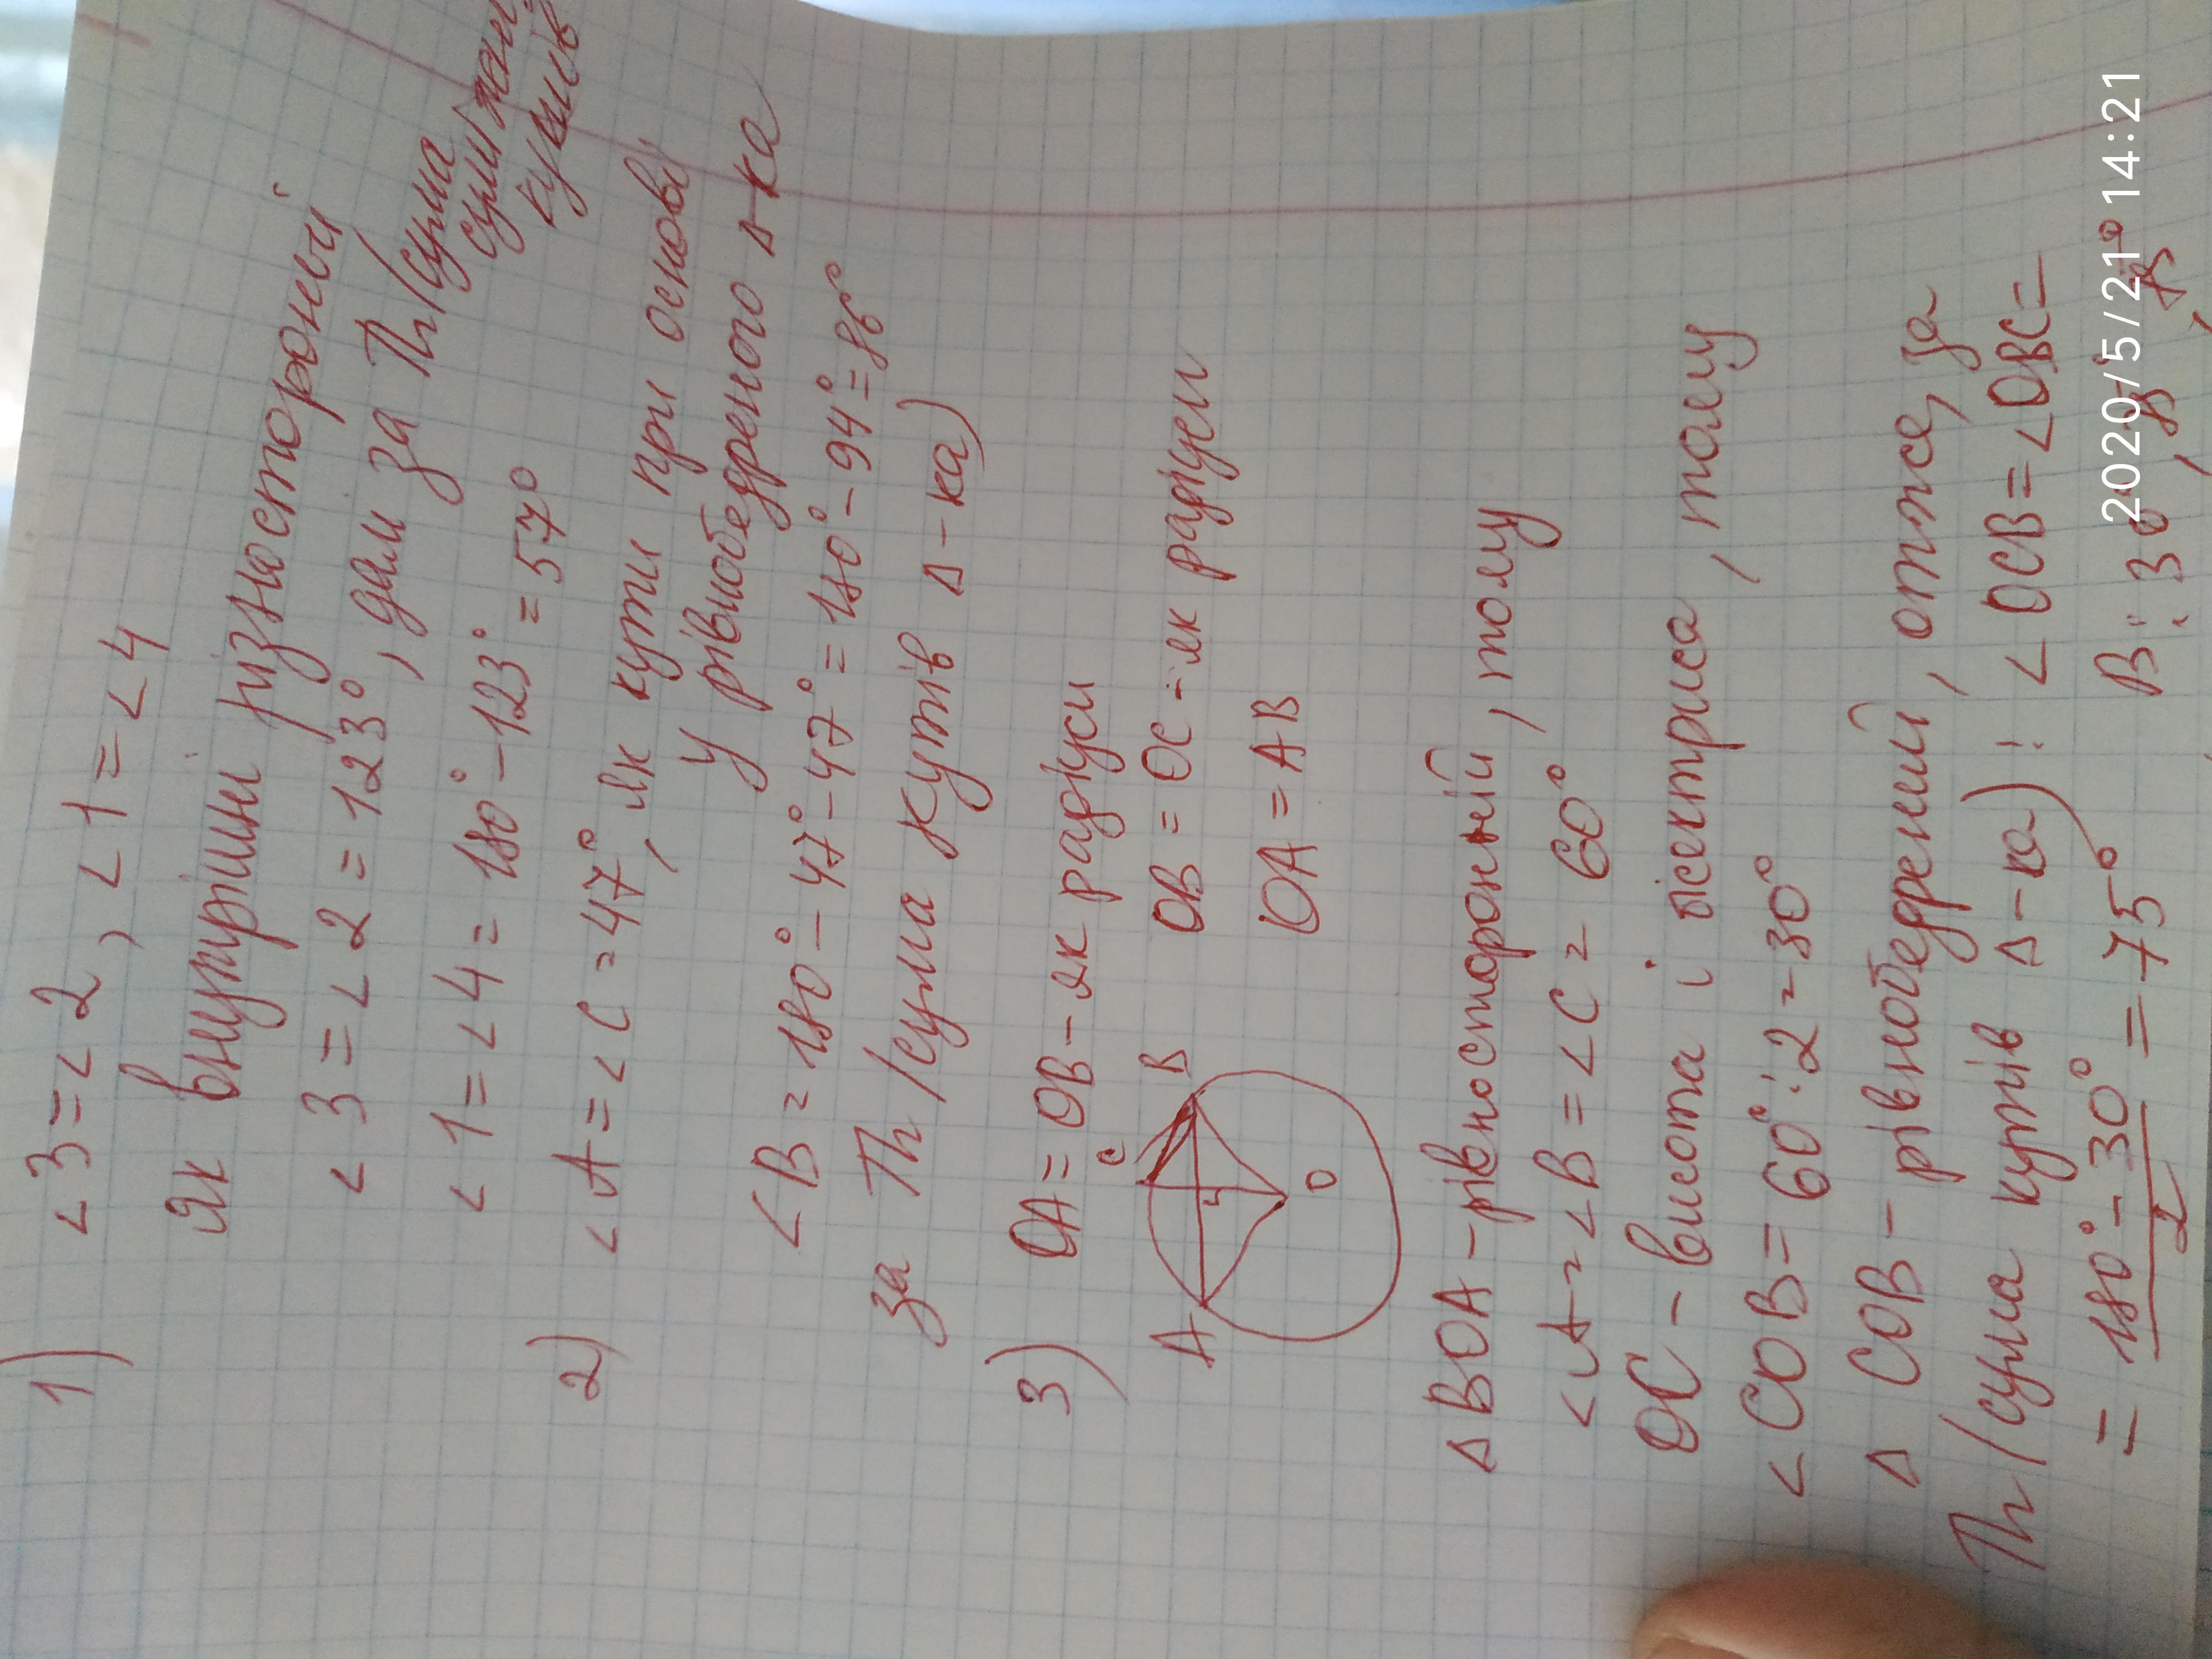 1) ∠3=∠2, ∠1=∠4
як внутрішні різносторонні
∠3=∠2=123°, далі за Th (сума
суміжних
кутів
∠1=∠4=180°-123°=57°
2) ∠A=∠C=47°, як кути при основі
у рівнобедреного Δ-ка
∠B=180°-47°-47°=180°-94°=86°
за Th (сума кутів Δ-ка)
3) OA=OB-як радіуси
OB=OC-як радіуси
OA=AB
A
C
B
O
ΔBOA-рівносторонній, тому
∠A=∠B=∠C=60°
OC-висота і бісектриса, тому
∠COB=60°:2=30°
ΔCOB-рівнобедрений, отже, за
Th (сума кутів Δ-ка): ∠OCB=∠OBC=
=180°-30°/2=75°
В: 30°,
2020/5/21 14:21